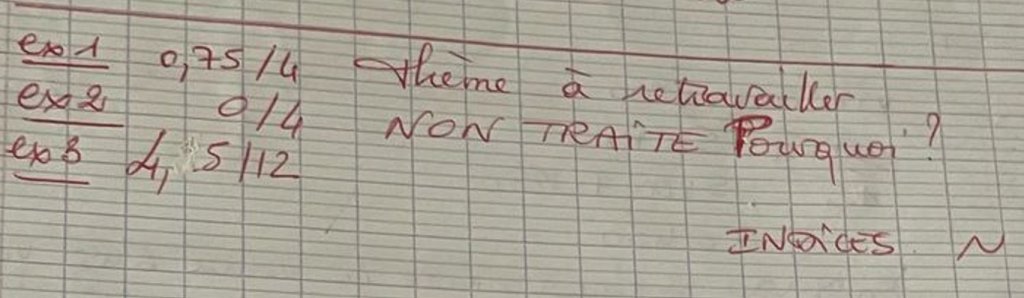 ex 1 0,75/4 thème à retravailler
ex 2 0/4 NON TRAITE Pourquoi ?
ex 3 4,5/12
INDICES N